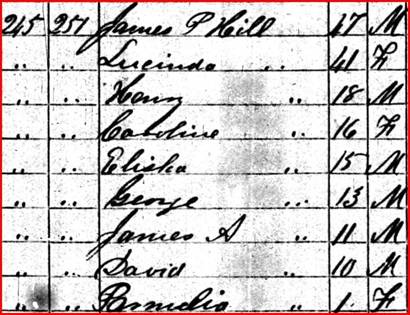 245 251 James P Hill 47 M
" " Lucinda " 41 F
" " Henry " 18 M
" " Caroline " 16 F
" " Elisha " 15 M
" " George " 13 M
" " James A " 11 M
" " David " 10 M
" " Parmelia " 1 F